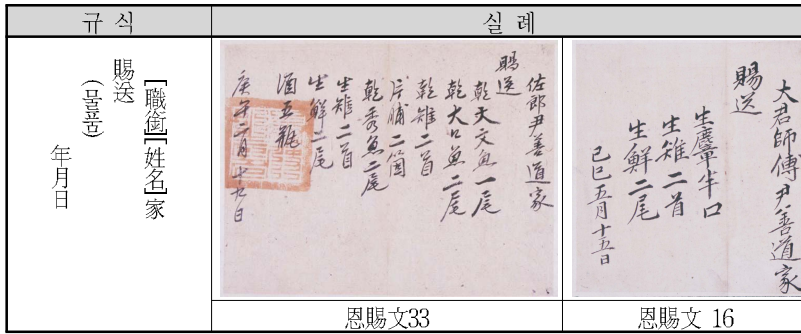 규 식
실 례
[職銜][姓名]家
賜送
(물품)
年月日
佐郎尹善道家
賜送
乾大文魚一尾
乾大口魚二尾
乾雉二首
片脯二箇
乾秀魚二尾
生雉二首
生鮮二尾
酒五瓶
庚午二月十日
恩賜文33
大君師傅尹善道家
賜送
生麞半口
生雉二首
生鮮二尾
己巳五月十五日
恩賜文 16